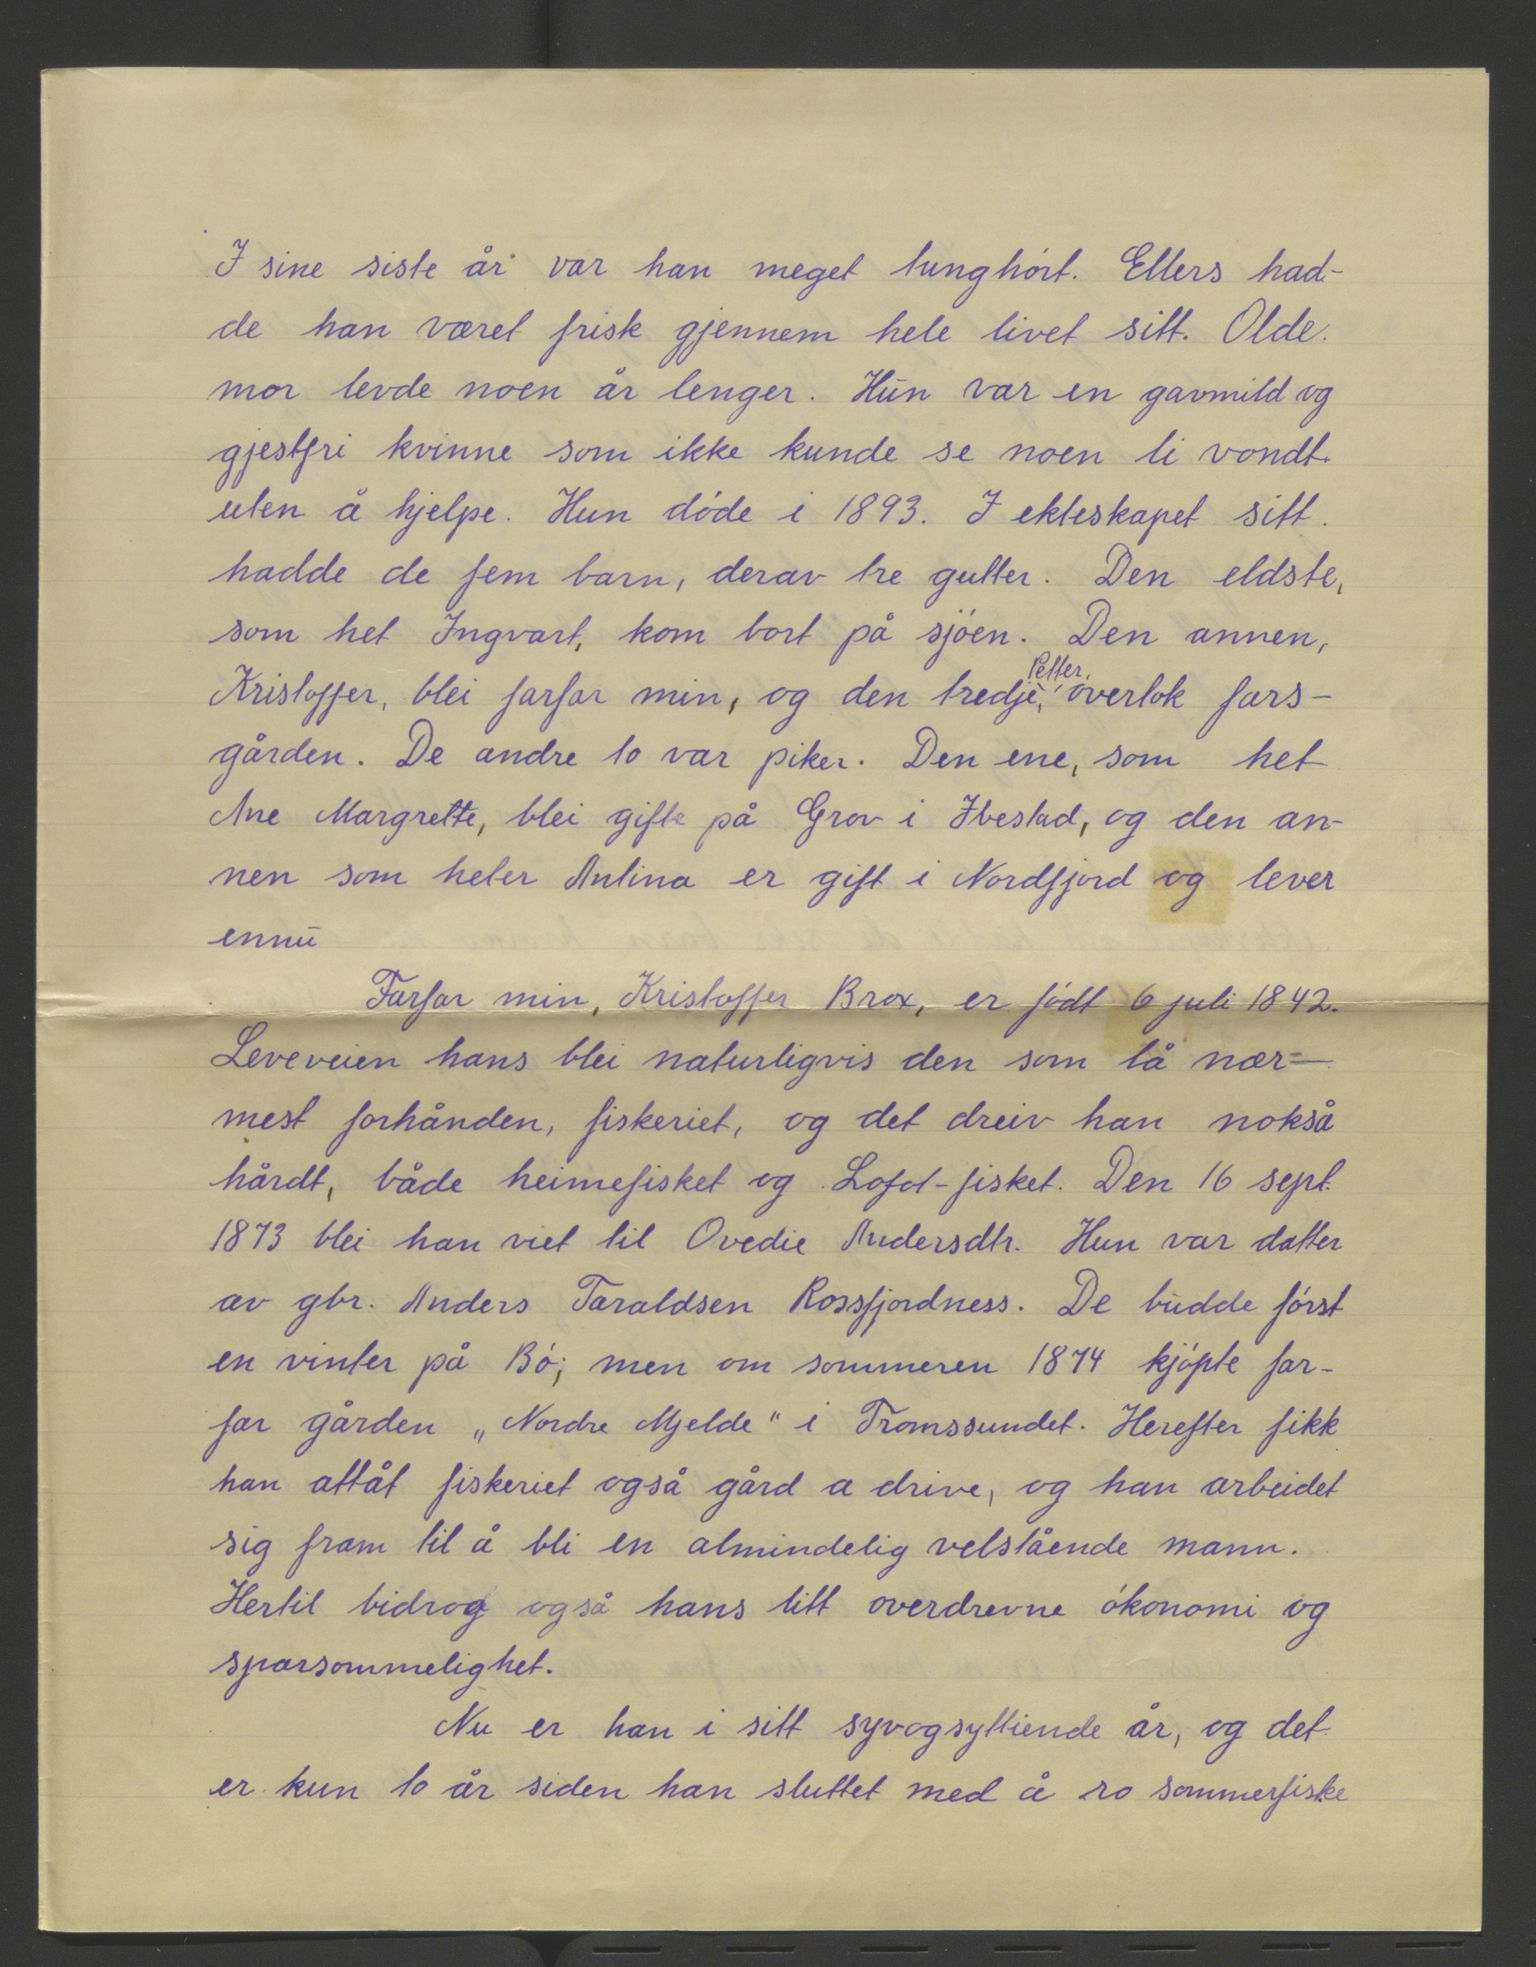 I sine siste år var han meget tunghørt. Ellers had-
de han været frisk gjennem hele livet sitt. Olde.
mor levde noen år lenger. Hun var en gavmild og
gjestfri kvinne som ikke kunde se noen li vondt
uten å hjelpe. Hun døde i 1893. I ekteskapet sitt
hadde de fem barn, derav tre gutter. Den eldste,
som het Ingvart, kom bort på sjøen. Den annen,
Kristoffer, blei farfar min, og den tredje, Petter, overtok fars-
gården. De andre to var piker. Den ene, som het
Ane Margrette, blei gift på Grov i Ibestad, og den an-
nen som heter Anlina er gift i Nordfjord og lever
ennu
Farfar min, Kristoffer Brox, er født 6 juli 1842.
Leveveien hans blei naturligvis den som lå nær-
mest forhånden, fiskeriet, og det dreiv han nokså
hårdt, både heimefisket og Lofot-fisket. Den 16 sept.
1873 blei han viet til Ovedie Andersdtr. Hun var datter
av gbr. Anders Taraldsen Rossfjordness. De budde først
en vinter på Bø; men om sommeren 1874 kjøpte far-
far gården „Nordre Mjelde" i Tromssundet. Herefter fikk
han attåt fiskeriet også gård a drive, og han arbeidet
sig fram til å bli en almindelig velstående mann.
Hertil bidrog også hans litt overdrevne økonomi og
sparsommelighet.
Nu er han i sitt syvogsyttiende år, og det
er kun to år siden han sluttet med å ro sommerfiske